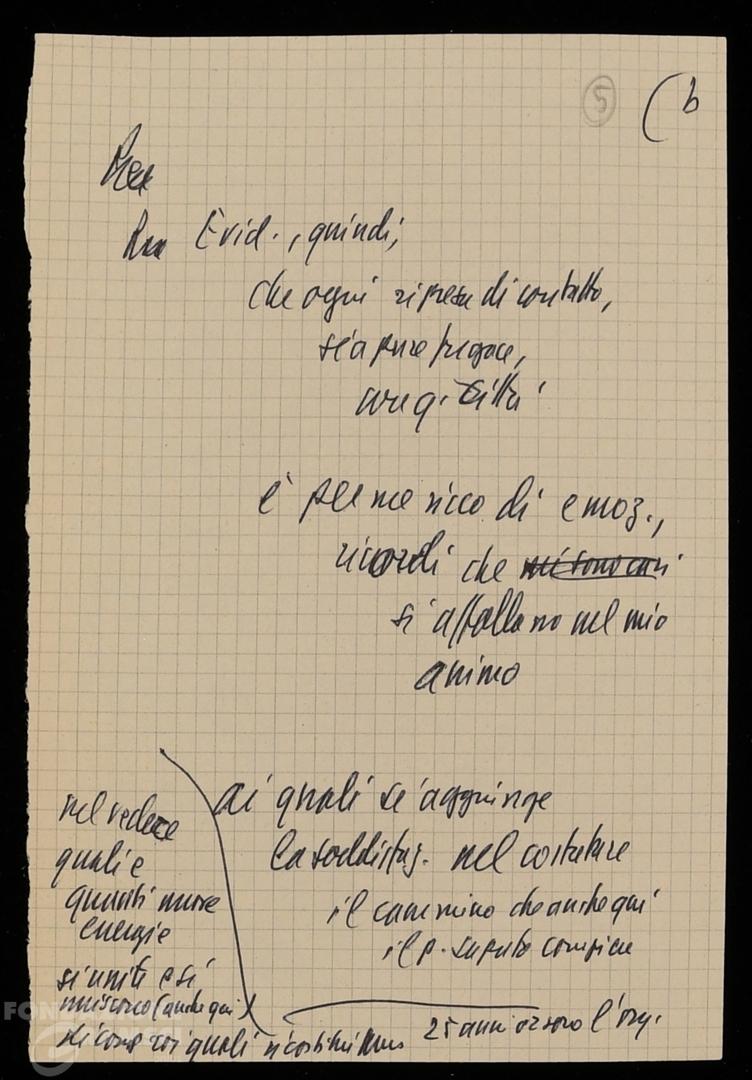 5 (b
Evid., quindi,
che ogni ripresa di contatto,
sia pure fugace,
con q. Città
è per me ricco di emoz.,
ricordi che mi sono cari
si affollano nel mio
animo
ai quali si aggiunge
la soddisfaz. nel costatare
il cammino che anche qui
il p. saputo compiere
25 anni or sono l'org.
nel vedere
quali e
quanti nuove
energie
si uniti e si
uniscono (anche qui)
con quali ricostituimmo
FON